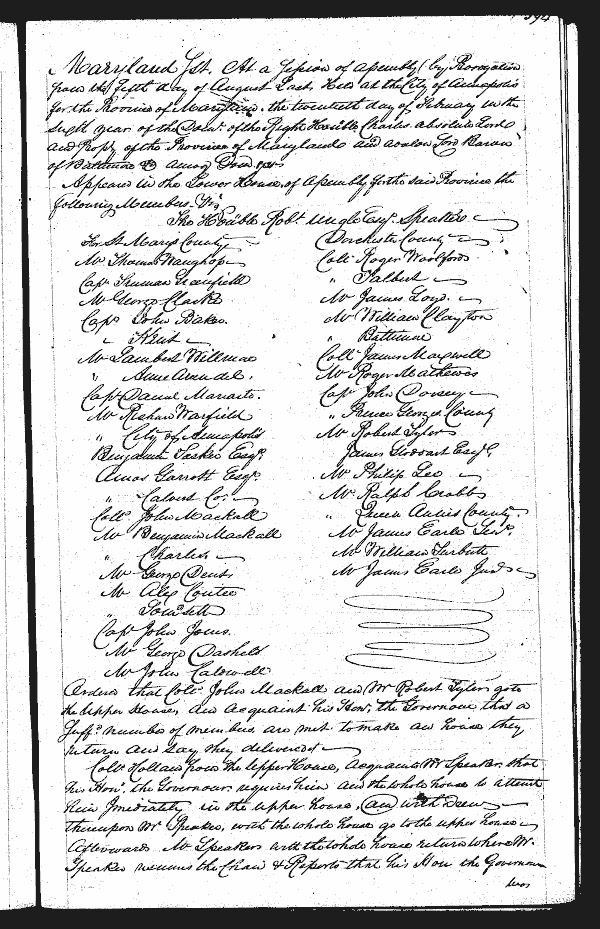 Maryland Sst. At a Session of Assembly (by Prorogation
from the fifth day of August Last, Held at the City of Annapolis
for the Province of Maryland, the twentieth day of February in the
year of the Domn. of the Right Honble Charles absolute Lord
and Propy of the Province of Maryland and avalon Lord Baron
of Baltimore &c annoq Dom
Appeared in the Lower House of Assembly for the said Province the
following Members Viz
The Honble Robt. Ungle Esqr. Speaker
For St Marys County
Mr Thomas Waughop
Capt Truman Greenfield
Mr George Clarke
Capt John Baker.
Kent
Mr Lambert Willmer
" Anne Arundel.
Capt Daniel Mariarte.
Mr Richard Warfield
" City of Annapolis
Benjamin Tasker Esqr.
Amos Garrett Esqr.
" Calvert Co:
Collo John Mackall
Mr Benjamin Mackall
" Charles
Mr George Dent
Mr Alex Contee
" Somersett
Capt John Jones.
Mr George Dashield
Mr John Caldwell
Dorchester County
Collo Roger Woolford
" Talbert
Mr James Loyd.
Mr William Clayton
" Baltimore
Collo James Maxwell
Mr Roger Mathews
Capt John Dorsey
" Prince Georges County
Mr Robert Tyler
James Stoddart Esqr.
Mr Philip Lee
Mr Ralph Crabb
" Queen Annes County
Mr James Earle Senr.
Mr William Turbutt
Mr James Earle Junr
Ordered that Collo John Mackall and Mr Robert Tyler goto
the Upper House, and Acquaint his Honr. the Governour that a
Sufft. number of members are met to make an house they
return and Say they delivered
Collo Holland from the Upper House, Acquaints Mr Speaker that
his Honr. the Governour requires him and the whole house to attend
him Imediately in the upper house,
thereupon Mr Speaker, with the whole house go to the upper house
Afterwards Mr Speaker with the whole house return where Mr.
Speaker resumes the Chair & Reports that his Honr the Governour